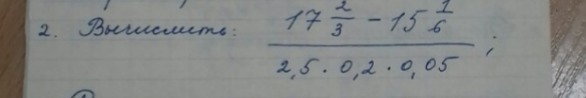 2. Вычислить: (17 2/3 - 15 1/6) / (2,5 · 0,2 · 0,05) ;